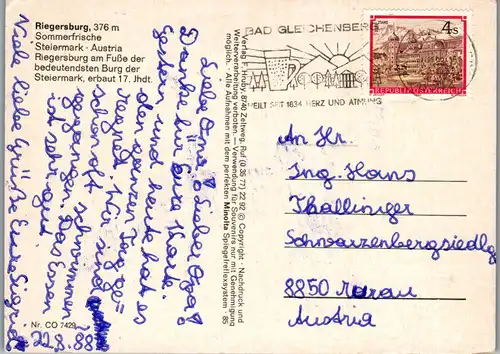 Riegersburg, 376 m
Sommerfrische
Steiermark · Austria
Riegersburg am Fuße der
bedeutendsten Burg der
Steiermark, erbaut 17. Jhdt.
Liebe Oma! Lieber Opa!
Danke für Eure Karte.
Gestern und heute hat es
den ganzen Tag ge-
regnet. Wir sind
schon oft schwimmen
gegangen. Das Essen
ist sehr gut.
Viele liebe Grüße Eure Sigrid
22.8.88
Nr. CO 7429
Verlag F. Hruby, 8740 Zeltweg, Ruf (0 35 77) 22 92 © Copyright · Nachdruck und
Weiterverarbeitung verboten. — Verwendung für Souvenirs nur mit Genehmigung
möglich. · Alle Aufnahmen mit dem perfekten Minolta Spiegelreflexsystem · 85
BAD GLEICHENBERG
HEILT SEIT 1834 HERZ UND ATMUNG
4 S
REPUBLIK ÖSTERREICH
An Hr.
Ing. Hans
Thallinger
Schwarzenbergsiedlg
8850 Murau
Austria